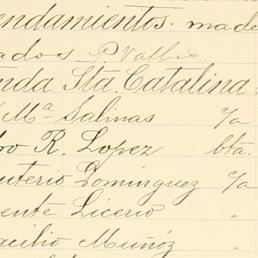 endamientos. made
ados P. Valle
enda Sta. Catalina.
Mª Salinas c/a
ro R. Lopez bta.
uterio Dominguez c/a
ente Licerio "
acilio Muñóz "